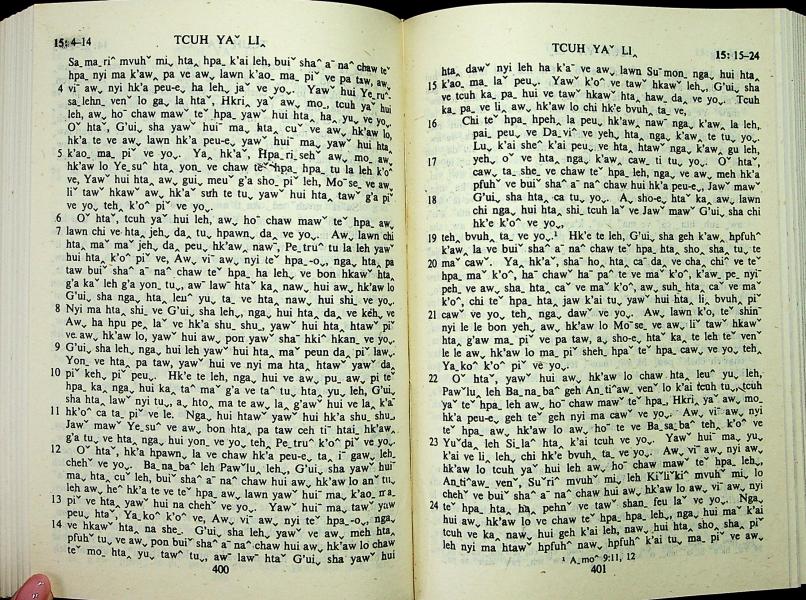 15: 4–14
TCUH YAˇ LIꞈ
Saˍ maˍ riˆ mvuhˇ mi˯ htaꞈ hpaˍ k'ai leh, buiˇ shaˆ aˉ naˆ chaw teˇ
hpaˍ nyi ma k'aw˯ pa ve aw˯ lawn k'aoˍ maˍ piˇ ve pa taw, aw˯
4 viˆ aw˯ nyi hk'a peu-eꞈ ha leh˯ jaˇ ve yo˯. Yawˇ hui Yeˍ ruˆ-
saˍ lehnˍ venˇ lo gaˍ la htaˇ, Hkri˯ yaˇ aw˯ mo˯, tcuh yaˇ hui
leh, aw˯ hoˉ chaw mawˇ teˇ hpaˍ yawˇ hui htaꞈ haˍ yu˯ ve yo˯.
Oˇ htaˇ, G'ui˯ sha yawˇ huiˉ ma˯ htaꞈ cuˇ ve aw˯ hk'aw lo,
hk'a te ve aw˯ lawn hk'a peu-eꞈ yawˇ huiˉ ma˯ yawˇ hui htaꞈ
5 k'aoˍ maˍ piˇ ve yo˯. Yaꞈ hk'aˇ, Hpaˍ riˍ sehˇ aw˯ mo˯ aw˯
hk'aw lo Yeˍ suˆ htaꞈ yon˯ ve chaw teˇ hpaˍ hpaˍ tu la leh k'oˆ
ve, Yawˇ hui htaꞈ aw˯ gui˯ meuˇ g'a shoˍ piˇ leh, Moˆ seˍ ve aw˯
liˇ tawˇ hkaw aw˯ hk'aˇ suh te tu˯ yawˇ hui htaꞈ tawˇ g'a piˇ
ve yo˯ teh˯ k'oˆ piˇ ve yo˯.
6 Oˇ htaˇ, tcuh yaˇ hui leh, aw˯ hoˉ chaw mawˇ teˇ hpaˍ aw˯
7 lawn chi ve htaꞈ jeh˯ daꞈ tu˯ hpawn˯ daꞈ ve yo˯. Aw˯ lawn chi
htaꞈ maˇ maˇ jeh˯ daꞈ peu˯ hk'aw˯ nawˉ, Peˍ truˆ tu la leh yawˇ
hui htaꞈ k'oˆ piˇ ve, Aw˯ viˉ aw˯ nyi teˇ hpaˍ -o˯, ngaꞈ htaꞈ pa
taw buiˇ shaˆ aˉ naˆ chaw teˇ hpaˍ ha leh˯ ve bon hkawˇ htaꞈ
g'a kaˇ leh g'a yon˯ tu˯, awˉ lawˉ htaˇ kaꞈ nawˬ hui aw˯ hk'aw lo
G'ui˯ sha ngaꞈ htaꞈ leuˆ yu˯ taꞈ ve htaꞈ nawˬ hui shiˍ ve yo˯.
8 Nyi ma htaꞈ shiˍ ve G'ui˯ sha leh˯, ngaꞈ hui htaꞈ daꞈ ve kehꞈ ve
Aw˯ ha hpu peꞈ laˇ ve hk'a shuˍ shu˯, yawˇ hui htaꞈ htawˇ piˇ
ve aw˯ hk'aw lo, yawˇ hui aw˯ pon yawˇ shaˉ hkiˆ hkan˯ ve yo˯.
9 G'ui˯ sha leh˯, ngaꞈ hui leh yawˇ hui htaꞈ maˇ peun da˯ piˇ law˯.
Yon˯ ve htaꞈ pa taw, yawˇ hui ve nyi ma htaꞈ htawˇ yawˇ daꞈ
10 piˇ kehˍ piˇ peu˯. Hk'eˇ te leh, ngaꞈ hui ve aw˯ puˍ aw˯ pi teˇ
hpaˍ kaꞈ ngaꞈ hui kaꞈ taˆ maˇ g'a ve taˆ tu˯ htaꞈ yu˯ leh, G'ui˯
sha htaꞈ lawnˇ nyi tu˯, aˍ hto˯ ma te aw˯ laꞈ g'awˇ hui ve laꞈ k'aˇ
11 hk'oˆ ca taꞈ piˇ ve le. Ngaꞈ hui htawˇ yawˇ hui hk'a shuˍ shu˯,
Jawˇ mawˇ Yeˍ suˆ ve aw˯ bon htaꞈ pa taw ceh tiˉ htai hk'aw˯
g'a tu˯ ve htaꞈ ngaꞈ hui yon˯ ve yo˯ teh˯ Peˍ truˆ k'oˆ piˇ ve yo˯.
12 Oˇ htaˇ, hk'a hpawn˯ la ve chaw hk'a peu-eꞈ taꞈ i˯ gaw˯ leh˯
chehˇ ve yo˯. Baˍ naˍ baˆ leh Pawˇluꞈ leh˯, G'ui˯ sha yawˇ huiˉ
ma˯ htaꞈ cuˇ leh, buiˇ shaˆ aˉ naˆ chaw hui aw˯ hk'aw lo anˆ tu˯
leh aw˯ heˆ hk'a te ve teˇ hpaˍ aw˯ lawn yawˇ huiˉ ma˯ k'aoˍ maˍ
13 piˇ ve htaꞈ yawˇ hui na chehˇ ve yo˯. Yawˇ huiˉ ma˯ tawˇ yawˇ
peu˯ htaˇ, Yaˍ koˆ kˇoˆ ve, Aw˯ viˆ aw˯ nyi teˇ hpaˍ -o˯, ngaꞈ
14 ve hkawˇ htaꞈ na sheˍ. G'ui˯ sha leh˯, yawˇ ve aw˯ meh htaꞈ
pfuhˇ tu˯ ve aw˯ pon buiˇ shaˆ aˉ naˆ chaw hui aw˯ hk'aw lo chaw
teˇ moˍ htaꞈ yu˯ tawˆ tu˯, awˉ lawˉ htaˇ G'ui˯ sha yawˇ hui
400
TCUH YAˇ LIꞈ
15: 15–24
htaꞈ dawˇ nyi leh ha k'aˆ ve aw˯ lawn Suˇ monˍ ngaꞈ hui htaꞈ
15 k'aoˍ maˍ laˇ peu˯. Yawˇ k'oˆ ve tawˇ hkawˇ leh˯, G'ui˯ sha
ve tcuh kaꞈ paꞈ hui ve tawˇ hkawˇ htaꞈ hawꞈ daꞈ ve yo˯. Tcuh
kaꞈ paꞈ ve liꞈ aw˯ hk'aw lo chi hk'e bvuhꞈ taꞈ ve,
16 Chi teˇ hpaˍ hpehꞈ la peu˯ hk'aw˯ nawˉ ngaꞈ k'aw˯ la leh,
paiˍ peu˯ ve Daˍ viˆ ve yeh˯ htaꞈ ngaꞈ k'aw˯ te tu˯ yo˯.
Lu˯ k'ai sheˆ k'ai peu˯ ve htaꞈ htawˇ ngaꞈ k'aw˯ gu leh,
17 yeh˯ oˇ ve htaꞈ ngaꞈ k'aw˯ cawꞈ ti tu˯ yo˯. Oˇ htaˇ,
caw˯ taˍ sheˍ ve chaw teˇ hpaˍ leh, ngaꞈ ve aw˯ meh hk'a
pfuhˇ ve buiˇ shaˆ aˉ naˆ chaw hui hk'a peu-eꞈ Jawˇ mawˇ
18 G'ui˯ sha htaꞈ ca tu˯ yo˯. Aꞈ sho-eꞈ htaˇ kaꞈ aw˯ lawn
chi ngaꞈ hui htaꞈ shiˍ tcuh laˇ ve Jawˇ mawˇ G'ui˯ sha chi
hk'e k'oˆ ve yo˯,
19 teh˯ bvuhꞈ taꞈ ve yo˯.¹ Hk'eˇ te leh, G'ui˯ sha geh k'aw˯ hpfuhˆ
k'aw˯ la ve buiˇ shaˆ aˉ naˆ chaw teˇ hpaˍ htaꞈ shoꞈ shaꞈ tu˯ te
20 maˇ cawˇ. Yaꞈ hk'aˇ, shaˉ ho˯ htaꞈ caˇ daꞈ ve chaꞈ chiˆ ve teˇ
hpaˍ maˇ k'oˆ, haˉ chawˇ haˉ paˆ te ve maˇ k'oˆ, k'awˍ peˍ nyiˇ
peh˯ ve aw˯ sha˯ htaꞈ caˇ ve maˇ k'oˆ, aw˯ suhꞈ htaꞈ caˇ ve maˇ
k'oˆ, chi teˇ hpaˍ htaꞈ jaw k'ai tu˯ yawˇ hui htaꞈ liꞈ bvuhꞈ piˇ
21 cawˇ ve yo˯ teh˯ ngaꞈ dawˇ ve yo˯. Aw˯ lawn k'o˯ teˇ shinˉ
nyi le le bon yeh˯ aw˯ hk'aw lo Moˆ seˍ ve aw˯ liˇ tawˇ hkawˇ
htaꞈ g'aw maˍ piˇ ve pa taw, aꞈ sho-eꞈ htaˇ kaꞈ te leh teˇ venˇ
le le aw˯ hk'aw lo maˍ piˇ shehˍ hpaˇ teˇ hpaˍ cawˇ ve yo˯ teh˯
Yaˍ koˆ k'oˆ piˇ ve yo˯.
22 Oˇ htaˇ, yawˇ hui aw˯ hk'aw lo chaw htaꞈ leu˯ leh,
Pawˇluꞈ leh Baˍ naˍ baˆ geh Anˍ tiˆawˍ venˇ lo k'ai tcuh tu˯, tcuh
yaˇ teˇ hpaˍ leh aw˯ hoˉ chaw mawˇ teˇ hpaˍ, Hkri˯ yaˇ aw˯ mo˯
hk'a peu-eꞈ geh teˇ geh nyi ma cawˇ ve yo˯. Aw˯ viˉ aw˯ nyi
teˇ hpaˍ aw˯ hk'aw lo aw˯ hoˉ te ve Baˍ saˍ baˆ teh˯ k'oˆ ve
23 Yuˇdaꞈ leh Siˍ laˆ htaꞈ k'ai tcuh ve yo˯. Yawˇ huiˉ ma˯ yu˯
k'ai ve liꞈ leh˯ chi hk'e bvuhꞈ taꞈ ve yo˯. Aw˯ viˉ aw˯ nyi
hk'aw lo tcuh yaˇ hui leh aw˯ hoˉ chaw mawˇ teˇ hpaˍ leh˯,
Anˍ tiˆawˍ venˇ, Suˇ riˆ mvuhˇ mi˯ leh Kiˇliˇkiˆ mvuhˇ mi˯ lo
chehˇ ve buiˇ shaˆ aˉ naˆ chaw hui aw˯ hk'aw lo aw˯ viˉ aw˯ nyi
24 teˇ hpaˍ htaꞈ haꞈ pehnˇ ve tawˇ shanˍ feu laˇ ve yo˯. Ngaꞈ
hui aw˯ hk'aw lo ve chaw teˇ hpaˍ hpaˍ leh˯, ngaꞈ hui maˇ k'ai
tcuh ve kaꞈ nawˬ hui geh k'ai leh, nawˬ hui htaꞈ shoꞈ shaꞈ piˇ
leh nyi ma htawˇ hpfuhˆ nawˬ hpfuhˆ k'ai tu˯ maˍ piˇ ve aw˯
¹ Aˍ moˆ 9:11, 12
401